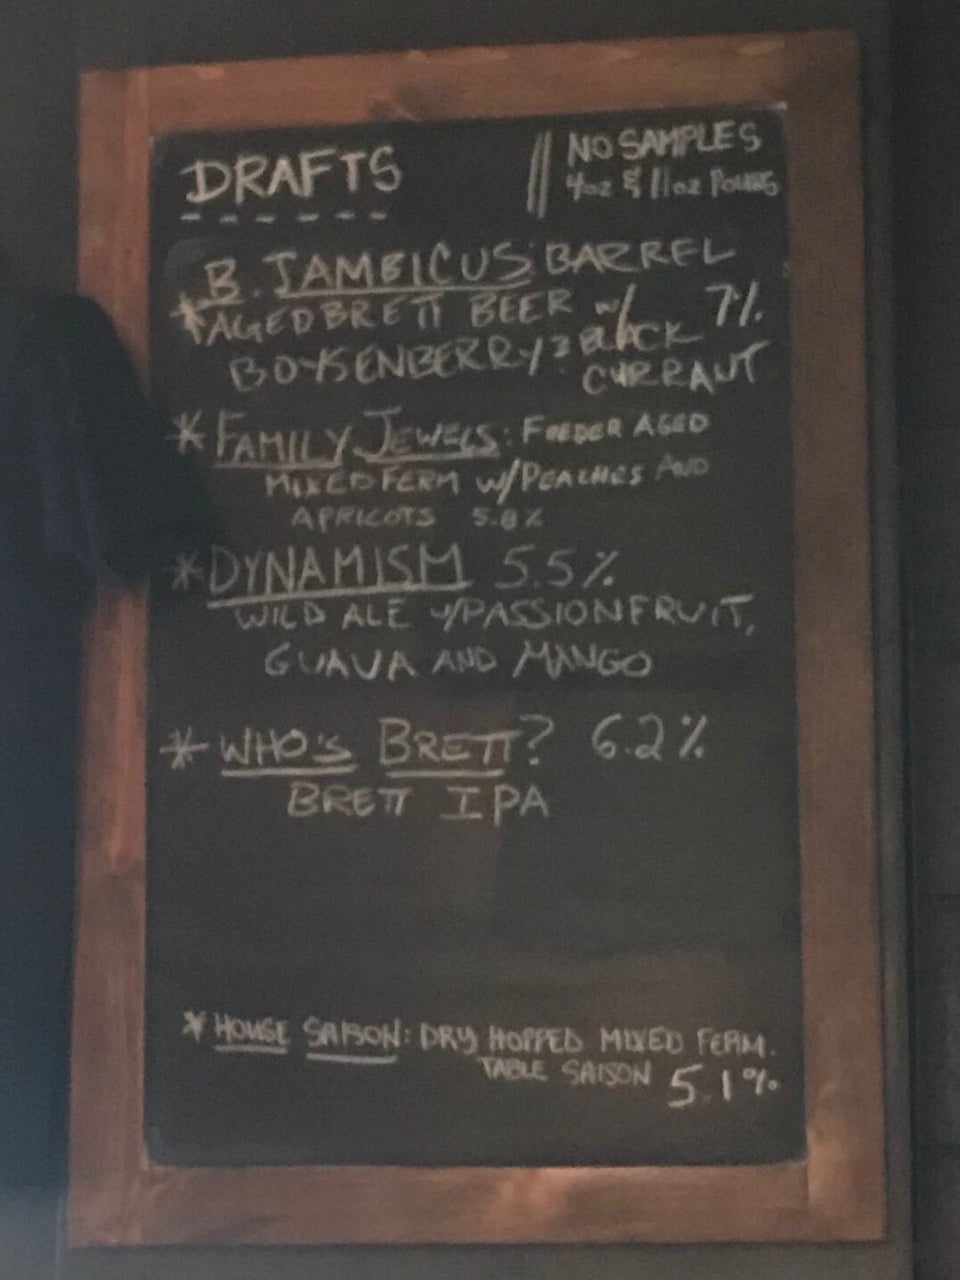 DRAFTS
NO SAMPLES
4oz & 11oz POURS
B. JAMBICUS: BARREL
* AGED BRETT BEER w/ 7%
BOYSENBERRY & BLACK
CURRAUT
* FAMILY JEWELS: FOEDER AGED
MIXED FERM w/ PEACHES AND
APRICOTS 5.8%
* DYNAMISM 5.5%
WILD ALE w/ PASSIONFRUIT,
GUAVA AND MANGO
* WHO'S BRETT? 6.2%
BRETT IPA
* HOUSE SAISON: DRY HOPPED MIXED FERM.
TABLE SAISON 5.1%